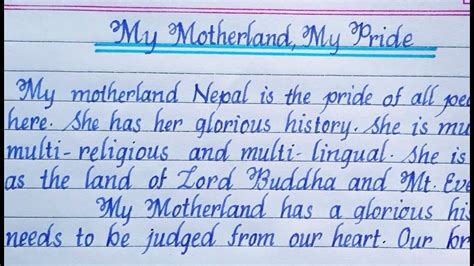 My Motherland, My Pride
My motherland Nepal is the pride of all
here. She has her glorious history. She is
multi-religious and multi-lingual. She is
as the land of Lord Buddha and Mt.
My Motherland has a glorious
needs to be judged from our heart. Our